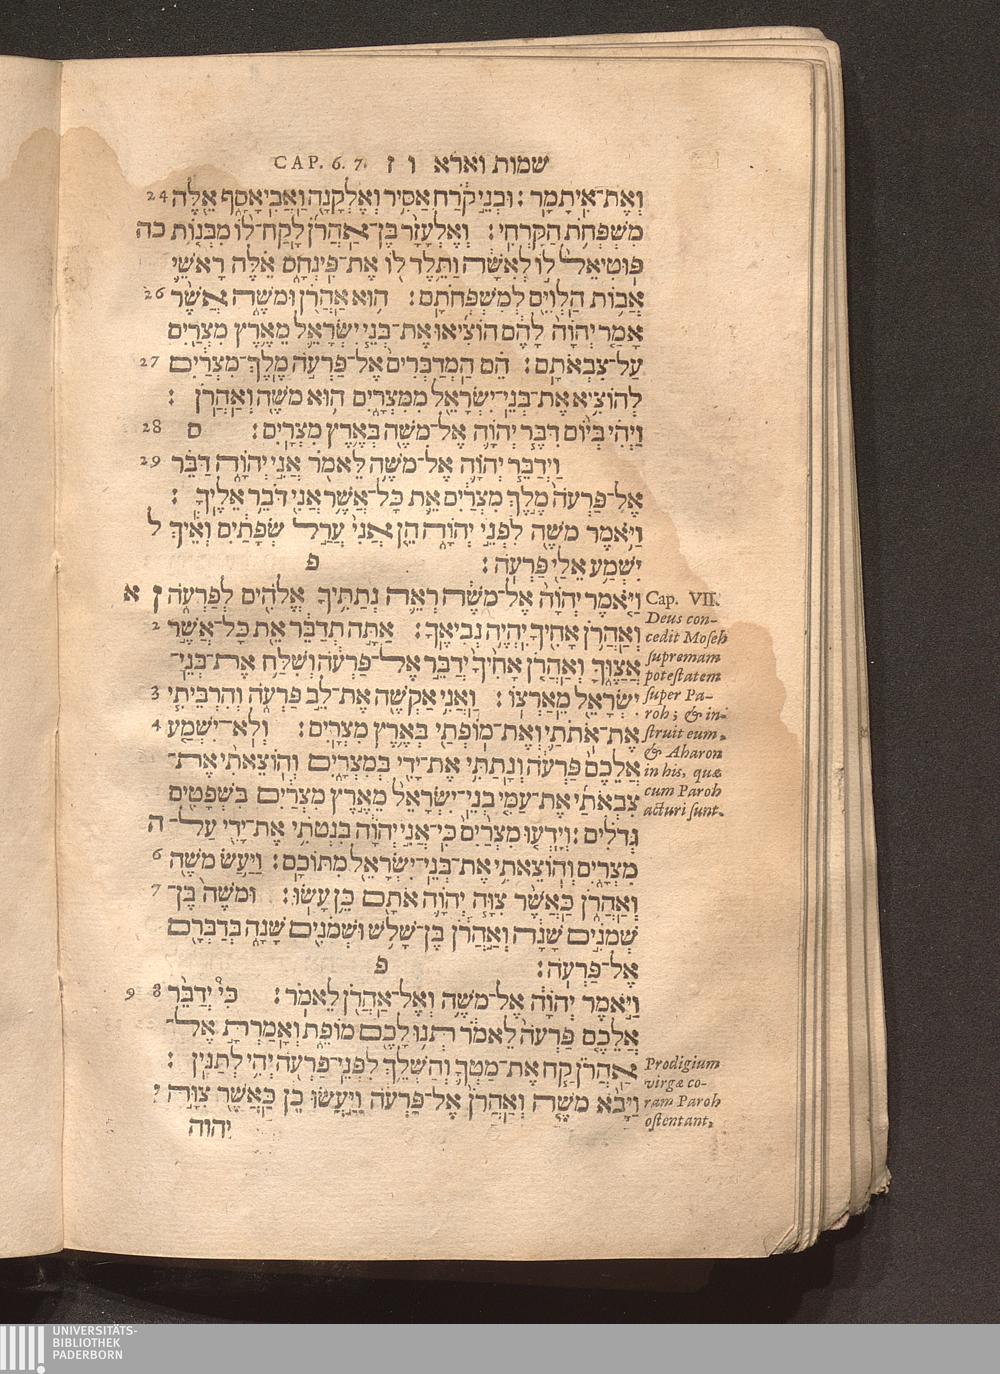 שמות וארא ו ז CAP. 6. 7.
וְאֶת־אִֽיתָמָֽר׃ וּבְנֵ֣י קֹ֔רַח אַסִּ֥יר וְאֶלְקָנָ֖ה וַאֲבִֽיאָסָ֑ף אֵ֖לֶּה 24
מִשְׁפְּחֹ֥ת הַקָּרְחִֽי׃ וְאֶלְעָזָ֨ר בֶּן־אַהֲרֹ֜ן לָקַֽח־ל֨וֹ מִבְּנ֤וֹת כה
פּֽוּטִיאֵל֙ ל֣וֹ לְאִשָּׁ֔ה וַתֵּ֥לֶד ל֖וֹ אֶת־פִּֽינְחָ֑ס אֵ֗לֶּה רָאשֵׁ֛י
אֲב֥וֹת הַלְוִיִּ֖ם לְמִשְׁפְּחֹתָֽם׃ ה֥וּא אַהֲרֹ֖ן וּמֹשֶׁ֑ה אֲשֶׁ֨ר 26
אָמַ֤ר יְהוָה֙ לָהֶ֔ם הוֹצִ֜יאוּ אֶת־בְּנֵ֧י יִשְׂרָאֵ֛ל מֵאֶ֥רֶץ מִצְרַ֖יִם
עַל־צִבְאֹתָֽם׃ הֵ֗ם הַֽמְדַבְּרִים֙ אֶל־פַּרְעֹ֣ה מֶֽלֶךְ־מִצְרַ֔יִם 27
לְהוֹצִ֥יא אֶת־בְּנֵֽי־יִשְׂרָאֵ֖ל מִמִּצְרָ֑יִם ה֥וּא מֹשֶׁ֖ה וְאַהֲרֹֽן׃
וַיְהִ֗י בְּי֨וֹם דִּבֶּ֧ר יְהוָ֛ה אֶל־מֹשֶׁ֖ה בְּאֶ֥רֶץ מִצְרָֽיִם׃ ס 28
וַיְדַבֵּ֧ר יְהוָ֛ה אֶל־מֹשֶׁ֥ה לֵּאמֹ֖ר אֲנִ֣י יְהוָ֑ה דַּבֵּ֗ר 29
אֶל־פַּרְעֹה֙ מֶ֣לֶךְ מִצְרַ֔יִם אֵ֛ת כָּל־אֲשֶׁ֥ר אֲנִ֖י דֹּבֵ֥ר אֵלֶֽיךָ׃
וַיֹּ֥אמֶר מֹשֶׁ֖ה לִפְנֵ֣י יְהוָ֑ה הֵ֤ן אֲנִי֙ עֲרַ֣ל שְׂפָתַ֔יִם וְאֵ֕יךְ ל
יִשְׁמַ֥ע אֵלַ֖י פַּרְעֹֽה׃ פ
וַיֹּ֤אמֶר יְהוָה֙ אֶל־מֹשֶׁ֔ה רְאֵ֛ה נְתַתִּ֥יךָ אֱלֹהִ֖ים לְפַרְעֹ֑ה ז א
וְאַהֲרֹ֥ן אָחִ֖יךָ יִהְיֶ֥ה נְבִיאֶֽךָ׃ אַתָּ֣ה תְדַבֵּ֔ר אֵ֖ת כָּל־אֲשֶׁ֣ר 2
אֲצַוֶּ֑ךָּ וְאַהֲרֹ֤ן אָחִ֙יךָ֙ יְדַבֵּ֣ר אֶל־פַּרְעֹ֔ה וְשִׁלַּ֥ח אֶת־בְּנֵֽי־
יִשְׂרָאֵ֖ל מֵאַרְצֽוֹ׃ וַאֲנִ֥י אַקְשֶׁ֖ה אֶת־לֵ֣ב פַּרְעֹ֑ה וְהִרְבֵּיתִ֧י 3
אֶת־אֹתֹתַ֛י וְאֶת־מוֹפְתַ֖י בְּאֶ֥רֶץ מִצְרָֽיִם׃ וְלֹֽא־יִשְׁמַ֤ע 4
אֲלֵכֶם֙ פַּרְעֹ֔ה וְנָתַתִּ֥י אֶת־יָדִ֖י בְּמִצְרָ֑יִם וְהוֹצֵאתִ֨י אֶת־
צִבְאֹתַ֜י אֶת־עַמִּ֤י בְנֵֽי־יִשְׂרָאֵל֙ מֵאֶ֣רֶץ מִצְרַ֔יִם בִּשְׁפָטִ֖ים
גְּדֹלִֽים׃ וְיָדְע֤וּ מִצְרַ֙יִם֙ כִּֽי־אֲנִ֣י יְהוָ֔ה בִּנְטֹתִ֥י אֶת־יָדִ֖י עַל־ ה
מִצְרָ֑יִם וְהוֹצֵאתִ֥י אֶת־בְּנֵֽי־יִשְׂרָאֵ֖ל מִתּוֹכָֽם׃ וַיַּ֥עַשׂ מֹשֶׁ֖ה 6
וְאַהֲרֹ֑ן כַּאֲשֶׁ֨ר צִוָּ֧ה יְהוָ֛ה אֹתָ֖ם כֵּ֥ן עָשֽׂוּ׃ וּמֹשֶׁה֙ בֶּן־ 7
שְׁמֹנִ֣ים שָׁנָ֔ה וְאַֽהֲרֹ֔ן בֶּן־שָׁלֹ֥שׁ וּשְׁמֹנִ֖ים שָׁנָ֑ה בְּדַבְּרָ֖ם
אֶל־פַּרְעֹֽה׃ פ
וַיֹּ֣אמֶר יְהוָ֔ה אֶל־מֹשֶׁ֥ה וְאֶֽל־אַהֲרֹ֖ן לֵאמֹֽר׃ כִּי֩ יְדַבֵּ֨ר 8 9
אֲלֵכֶ֤ם פַּרְעֹה֙ לֵאמֹ֔ר תְּנ֥וּ לָכֶ֖ם מוֹפֵ֑ת וְאָמַרְתָּ֣ אֶֽל־
אַהֲרֹ֗ן קַ֧ח אֶֽת־מַטְּךָ֛ וְהַשְׁלֵ֥ךְ לִפְנֵֽי־פַרְעֹ֖ה יְהִ֥י לְתַנִּֽין׃
וַיָּבֹ֨א מֹשֶׁ֤ה וְאַהֲרֹן֙ אֶל־פַּרְעֹ֔ה וַיַּ֣עֲשׂוּ כֵ֔ן כַּאֲשֶׁ֖ר צִוָּ֣ה י
יהוה
Cap. VII.
Deus con-
cedit Moseh
supremam
potestatem
super Pa-
roh; & in-
struit eum,
& Aharon
in his, quæ
cum Paroh
acturi sunt.
Prodigium
virgæ co-
ram Paroh
ostentant,
UNIVERSITÄTS-
BIBLIOTHEK
PADERBORN